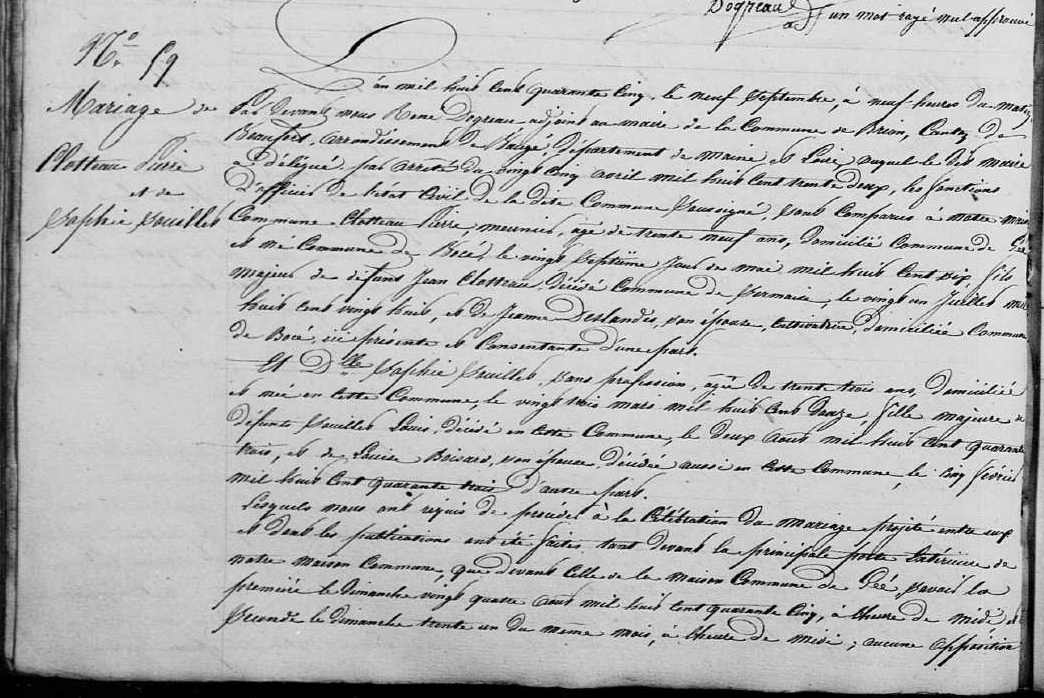 Dogreau
adjt
un mot rayé nul approuvé
N.º 59
Mariage de
Clotteau Pierre
et de
Sophie Souillet
L'an mil huit cent quarante cinq, le neuf Septembre, à neuf heures du matin
Par devant nous René Dogreau adjoint au maire de la Commune de Brion, Canton de
Beaufort, arrondissement de Baugé, Département de Maine et Loire auquel le dit maire
a délégué par arrêté du vingt cinq avril mil huit cent trente deux, les fonctions
d'officier de l'état Civil de la dite Commune Soussigné, sont Comparus à notre maison
Commune Clotteau Pierre meunier, âgé de trente neuf ans, domicilié Commune de Gée
et né Commune de Bocé, le vingt Septième Jour de mai mil huit cent six fils
majeur de défunt Jean Clotteau, décédé Commune de Vernaire, le vingt un Juillet mil
huit cent vingt huit, et de Jeanne Deslandes, son épouse, Cultivatrice, domiciliée Commune
de Bocé, ici présente et Consentante d'une part.
Et Dlle Sophie Souillet, sans profession, âgée de trente trois ans, domiciliée
et née en cette Commune, le vingt trois mars mil huit cent douze, fille majeure de
défunts Souillet Louis, décédé en cette Commune, le deux août mil huit cent quarante
trois, et de Louise Boisard, son épouse, décédée aussi en cette Commune, le cinq février
mil huit cent quarante trois d'autre part.
Lesquels nous ont requis de procéder à la Célébration du mariage projeté entre eux
et dont les publications ont été faites, tant devant la principale porte Extérieure de
notre maison Commune, que devant Celle de la maison Commune de Gée, savoir la
première le Dimanche vingt quatre août mil huit cent quarante cinq, à l'heure de midi et
Seconde le dimanche trente un du même mois, à l'heure de midi ; aucune opposition